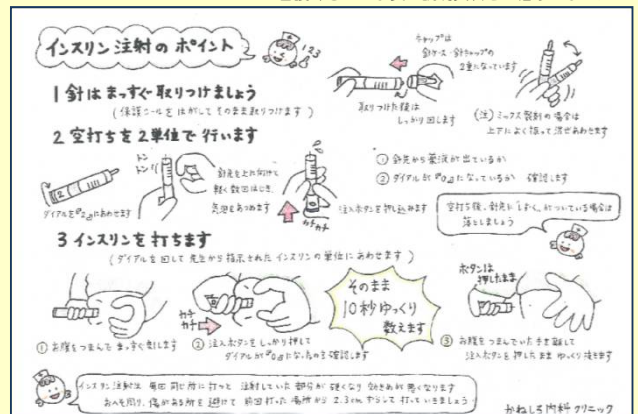 インスリン注射のポイント
1 2 3
キャップは
針ケース・針キャップの
2重になっています
1 針はまっすぐ取りつけましょう
(保護シールをはがしてそのまま取りつけます)
取りつけた後は
しっかり回します
(注)ミックス製剤の場合は
上下によく振って混ぜあわせます
2 空打ちを2単位で行います
トン
トン
針先を上に向けて
軽く数回はじき、
気泡をあつめます
ダイアルを『2』にあわせます
カチ
カチ
注入ボタンを押し込みます
① 針先から薬液が出ているか
② ダイアルが『0』になっているか 確認します
空打ち後、針先に『しずく』が付いている場合は
落としましょう
3 インスリンを打ちます
(ダイアルを回して先生から指示されたインスリンの単位にあわせます)
① お腹をつまんでまっすぐ刺します
カチ
カチ
② 注入ボタンをしっかり押して
ダイアルが『0』になったのを確認します
そのまま
10秒ゆっくり
数えます
ボタンは
押したまま
③ お腹をつまんでいた手を離して
注入ボタンを押したままゆっくり抜きます
インスリン注射は 毎回同じ所に打つと 注射していた部分が硬くなり 効きめが悪くなります
おへそ周り、傷がある所を避けて 前回打った場所から 2.3cmずらして打っていきましょう
かねしろ内科クリニック